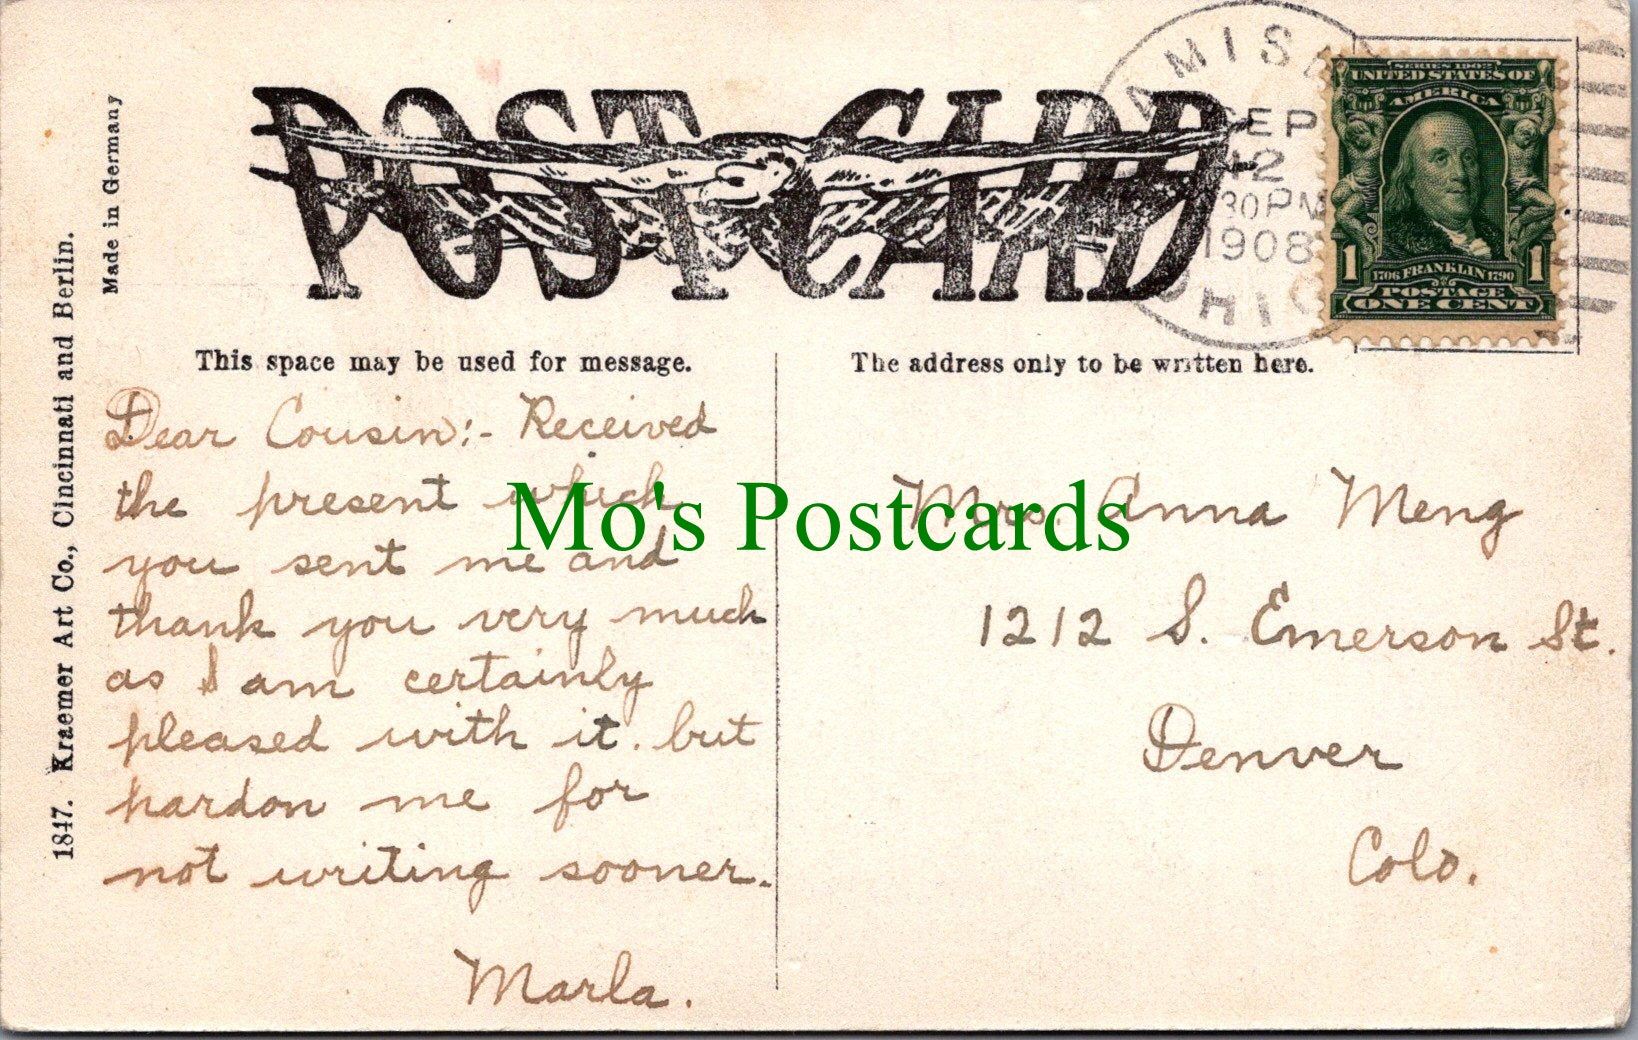 POST CARD
Made in Germany
1847. Kraemer Art Co., Cincinnati and Berlin.
AMIS
SEP
12
30PM
1908
OHIO
SERIES 1902
UNITED STATES OF
AMERICA
1706 FRANKLIN 1790
1 1
POSTAGE
ONE CENT
This space may be used for message.
The address only to be written here.
Dear Cousin:- Received
the present which
you sent me and
thank you very much
as I am certainly
pleased with it. but
pardon me for
not writing sooner.
Marla.
Mrs. Anna Meng
1212 S. Emerson St.
Denver
Colo.
Mo's Postcards